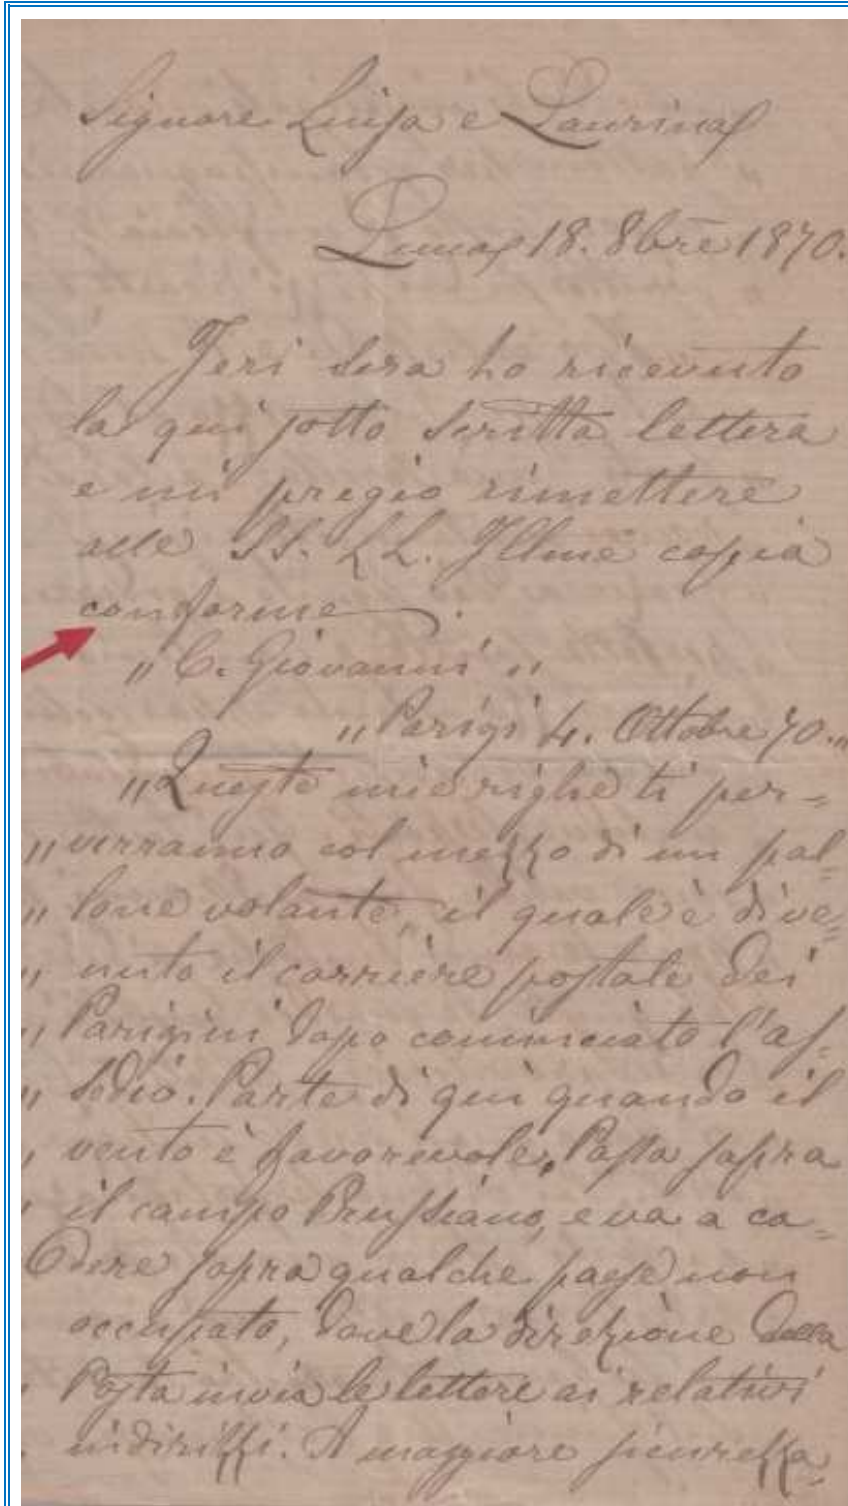 Signore Luisa e Laurina
18. 8bre 1870.
Jeri sera ho ricevuto
la qui sotto scritta lettera
e mi pregio rimettere
alle SS. LL. Illme copia
conforme.
„ C. Giovanni „
„ Parigi 4. Ottobre 70. „
„ Queste mie righe ti per=
„ verranno col mezzo di un pal=
„ lone volante, il quale è dive=
„ nuto il corriere postale dei
„ Parigini dopo cominciato l'as=
„ sedio. Parte di qui quando il
„ vento è favorevole. Passa sopra
„ il campo Prussiano, e va a ca=
dere sopra qualche paese non
occupato, dove la direzione della
„ Posta invia le lettere ai relativi
„ indirizzi. A maggiore sicurezza